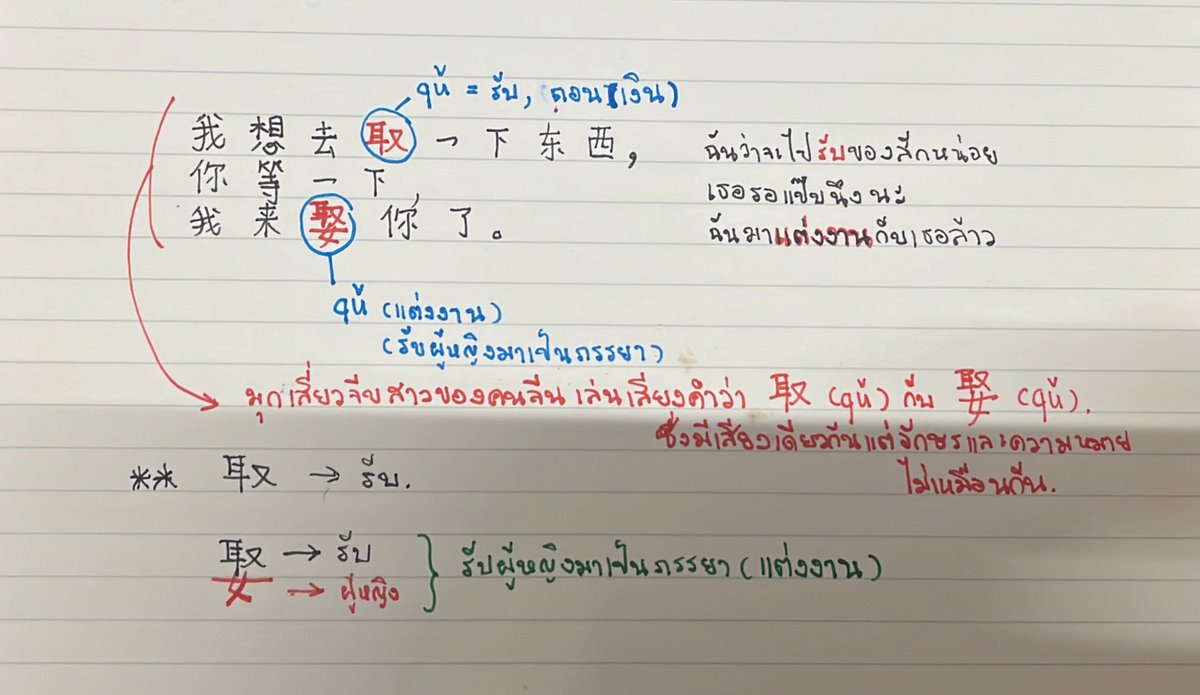 qǔ = รับ, (ถอนเงิน)
我想去取一下东西,
你等一下,
我来娶你了。
ฉันว่าจะไปรับของสักหน่อย
เธอรอแป๊บนึงนะ
ฉันมาแต่งงานกับเธอล้าว
qǔ (แต่งงาน)
(รับผู้หญิงมาเป็นภรรยา)
มุกเสี่ยวจีบสาวของคนจีน เล่นเสียงคำว่า 取 (qǔ) กับ 娶 (qǔ).
ซึ่งมีเสียงเดียวกันแต่อักษรและความหมาย
ไม่เหมือนกัน.
** 取 → รับ.
取 → รับ
女 → ผู้หญิง
รับผู้หญิงมาเป็นภรรยา (แต่งงาน)